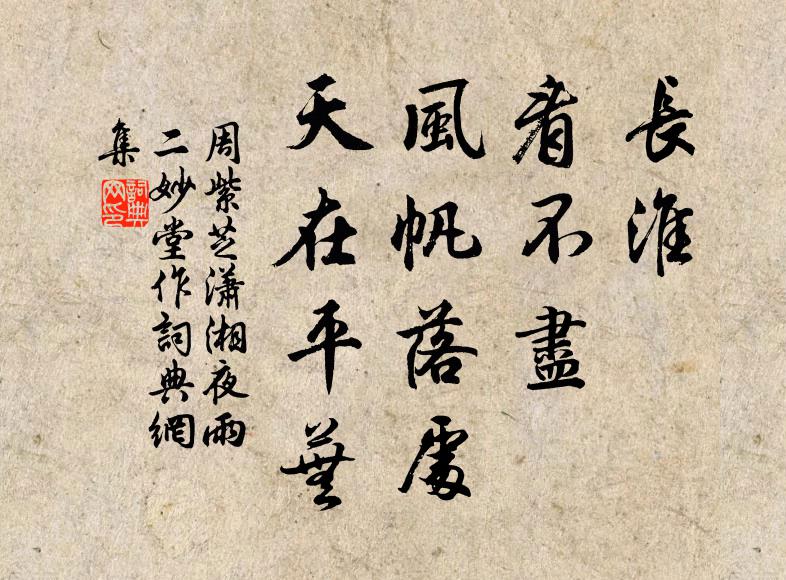 長淮
看不盡
風帆落處
天在平蕪
周紫芝瀟湘夜雨
二妙堂作詞典網
集
詞典網印